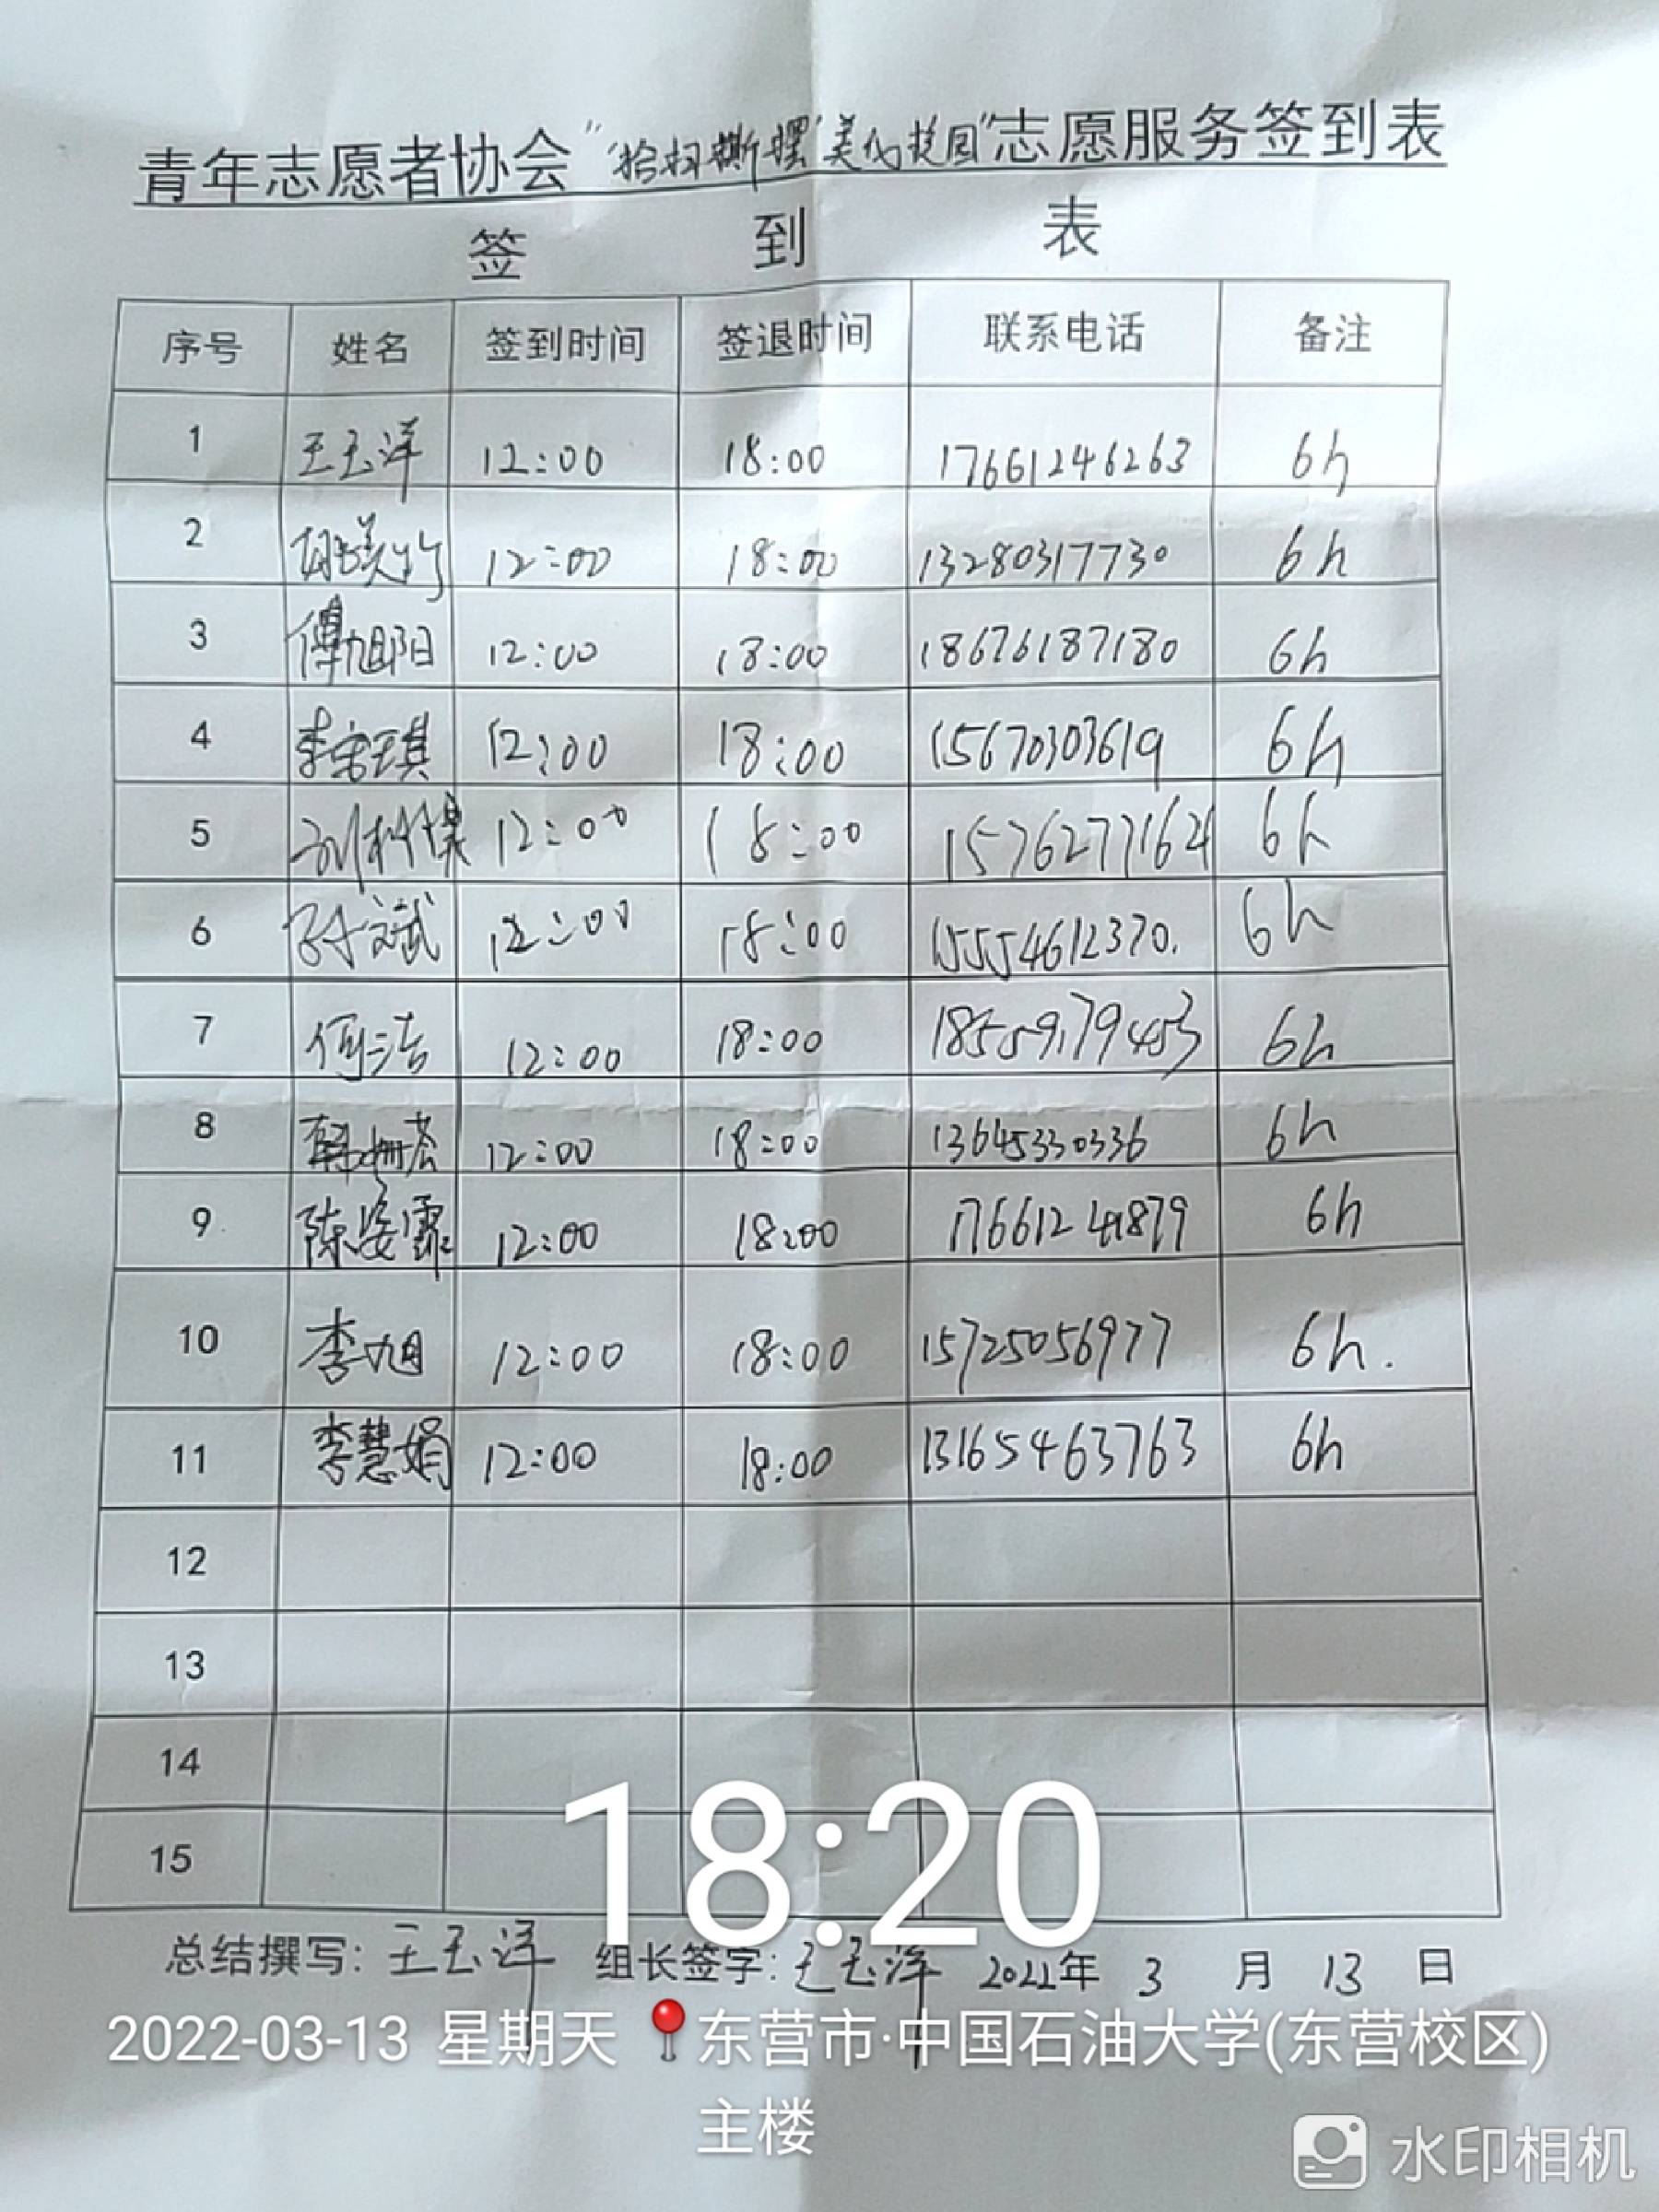 青年志愿者协会“'拾扫撕摆'美化校园”志愿服务签到表
签 到 表
序号 姓名 签到时间 签退时间 联系电话 备注
1 王玉洋 12:00 18:00 17661246263 6h
2 12:00 18:00 13280317730 6h
3 傅旭阳 12:00 18:00 18676187180 6h
4 12:00 18:00 15670303619 6h
5 12:00 18:00 15762771624 6h
6 孙文斌 12:00 18:00 15554612370. 6h
7 何洁 12:00 18:00 18559179453 6h
8 12:00 18:00 13645330336 6h
9 陈姿霏 12:00 18:00 17661241879 6h
10 李旭 12:00 18:00 15725056977 6h.
11 李慧娟 12:00 18:00 13165463763 6h
12
13
14
15
18:20
总结撰写: 王玉洋 组长签字: 王玉洋 2022年 3 月 13 日
2022-03-13 星期天 东营市·中国石油大学(东营校区)
主楼
水印相机